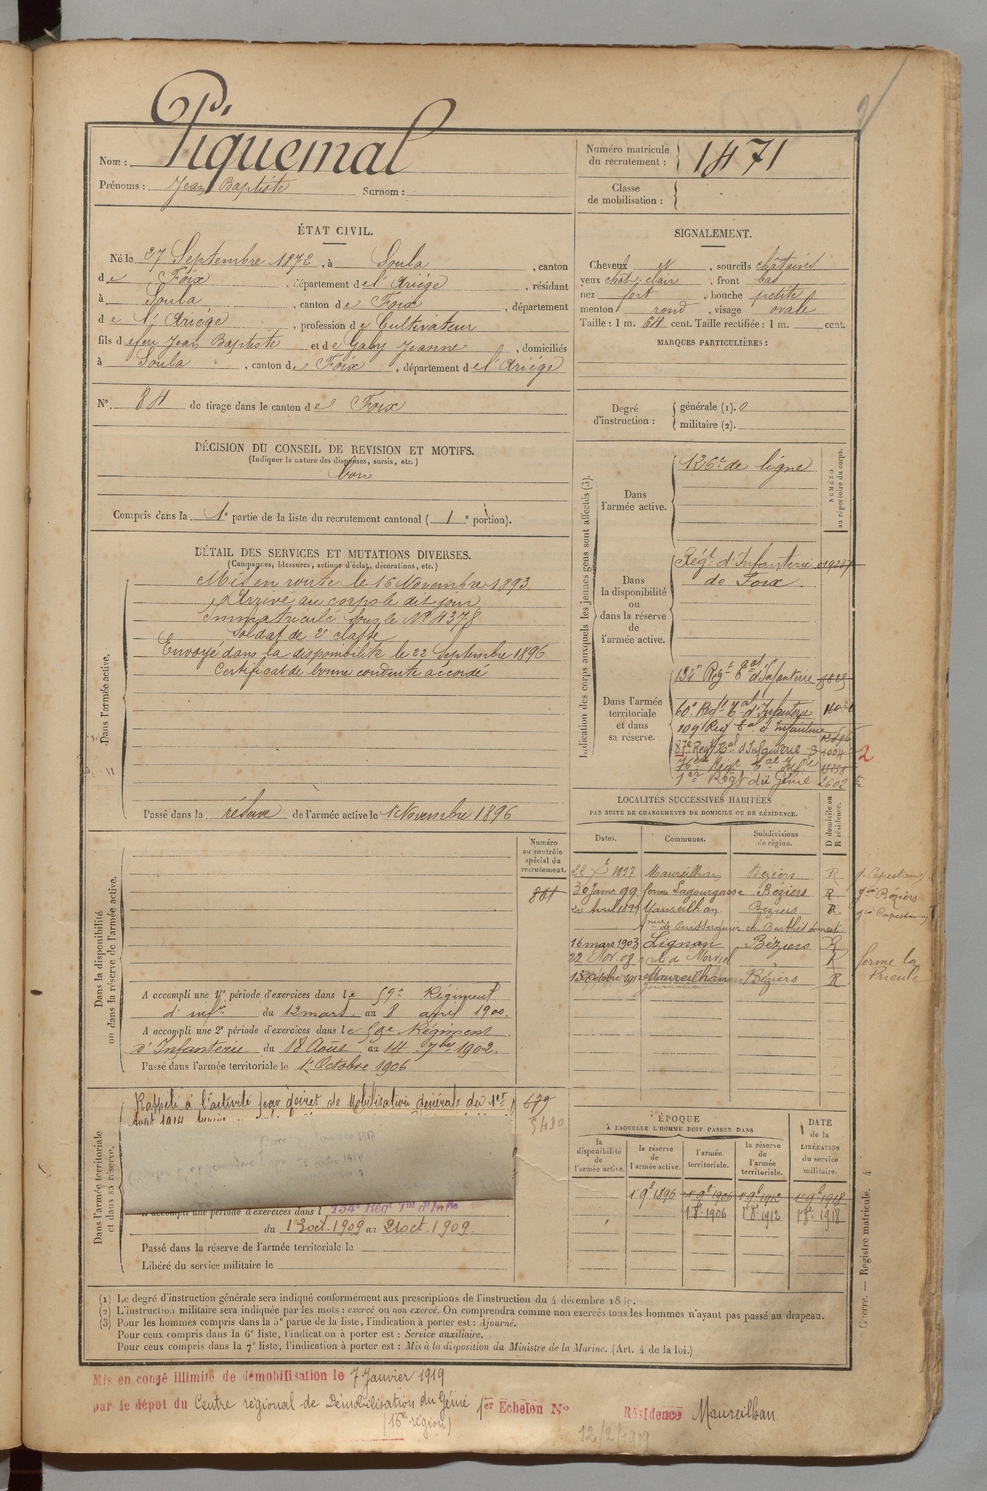 Piquemal
Nom :
Prénoms : Jean Baptiste Surnom :
Numéro matricule du recrutement : 1471
Classe de mobilisation :
ÉTAT CIVIL.
Né le 27 Septembre 1872, à Soula, canton
de Foix, département de l'Ariége, résidant
à Soula, canton de Foix, département
de l'Ariége, profession de Cultivateur
fils de feu Jean Baptiste et de Gaby Jeanne, domiciliés
à Soula, canton de Foix, département de l'Ariége
N° 84 de tirage dans le canton de Foix
SIGNALEMENT.
Cheveux et, sourcils châtains
yeux chât. clair, front bas
nez fort, bouche petite
menton rond, visage ovale
Taille : 1 m. 64 cent. Taille rectifiée : 1 m. cent.
MARQUES PARTICULIÈRES :
Degré d'instruction : générale (1). 0
militaire (2).
DÉCISION DU CONSEIL DE REVISION ET MOTIFS.
(Indiquer la nature des dispenses, sursis, etc.)
bon
Compris dans la 1e partie de la liste du recrutement cantonal ( 1e portion).
DÉTAIL DES SERVICES ET MUTATIONS DIVERSES.
(Campagnes, blessures, actions d'éclat, décorations, etc.)
Dans l'armée active.
Mis en route le 16 Novembre 1893
Arrivé au corps le dit jour
immatriculé sous le N° 4378
Soldat de 2e classe
Envoyé dans la disponibilité le 22 Septembre 1896
Certificat de bonne conduite accordé
Passé dans la réserve de l'armée active le 1 Novembre 1896
Indication des corps auxquels les jeunes gens sont affectés (3).
NUMÉRO au répertoire du corps.
Dans l'armée active.
126e de ligne
Dans la disponibilité ou dans la réserve de l'armée active.
Régt. d'Infanterie
de Foix
Dans l'armée territoriale et dans sa réserve.
134e Régt Tal d'Infanterie
60e Régt Tal d'Infanterie
109e Reg Tal d'Infanterie
87e Regt Tal d'Infanterie
76eme Regt Tal Inf
1er Regt du Génie 2602
2
LOCALITÉS SUCCESSIVES HABITÉES
PAR SUITE DE CHANGEMENTS DE DOMICILE OU DE RÉSIDENCE.
D domicile ou R résidence.
Dates. Communes. Subdivisions de région.
Maureilhan Beziers R
30 Janv 99 ferme Lagourgasse Béziers R
20 Avril 1899 Maureilhan Beziers R
16 mars 1903 Lignan Béziers R
22 Nov. 09
Maureilhan Béziers R
Numéro au contrôle spécial du recrutement.
861
Dans la disponibilité ou dans la réserve de l'armée active.
A accompli une 1re période d'exercices dans le 59e Régiment
d'infie du 12 mars au 8 avril 1900.
A accompli une 2e période d'exercices dans le 59e Régiment
d'Infanterie du 18 Août au 14 7bre 1902.
Passé dans l'armée territoriale le 1 Octobre 1906
Dans l'armée territoriale et dans sa réserve.
Rappelé à l'activité par décret de Mobilisation générale du 1er
Août 1914
679
A accompli une période d'exercices dans l 134e Régt Tal d'Infie
du 13 oct. 1909 au 21 oct. 1909
Passé dans la réserve de l'armée territoriale le
Libéré du service militaire le
ÉPOQUE
À LAQUELLE L'HOMME DOIT PASSER DANS
DATE de la LIBÉRATION du service militaire.
la disponibilité de l'armée active. la réserve de l'armée active. l'armée territoriale. la réserve de l'armée territoriale.
1 9e 1896 1 9e 1906 1 9e 1912 1 9e 1918
1 8e 1906 1 8e 1912 1 8e 1918
Guerre. — Registre matricule. 4
(1) Le degré d'instruction générale sera indiqué conformément aux prescriptions de l'instruction du 4 décembre 18
(2) L'instruction militaire sera indiquée par les mots : exercé ou non exercé. On comprendra comme non exercés tous les hommes n'ayant pas passé au drapeau.
(3) Pour les hommes compris dans la 5e partie de la liste, l'indication à porter est : Ajourné.
Pour ceux compris dans la 6e liste, l'indication à porter est : Service auxiliaire.
Pour ceux compris dans la 7e liste, l'indication à porter est : Mis à la disposition du Ministre de la Marine. (Art. 4 de la loi.)
Mis en congé illimité de démobilisation le 7 Janvier 1919
par le dépôt du Centre régional de Démobilisation du Génie 1er Echelon N° Résidence Maureilhan
(16e région)
12/2/1919